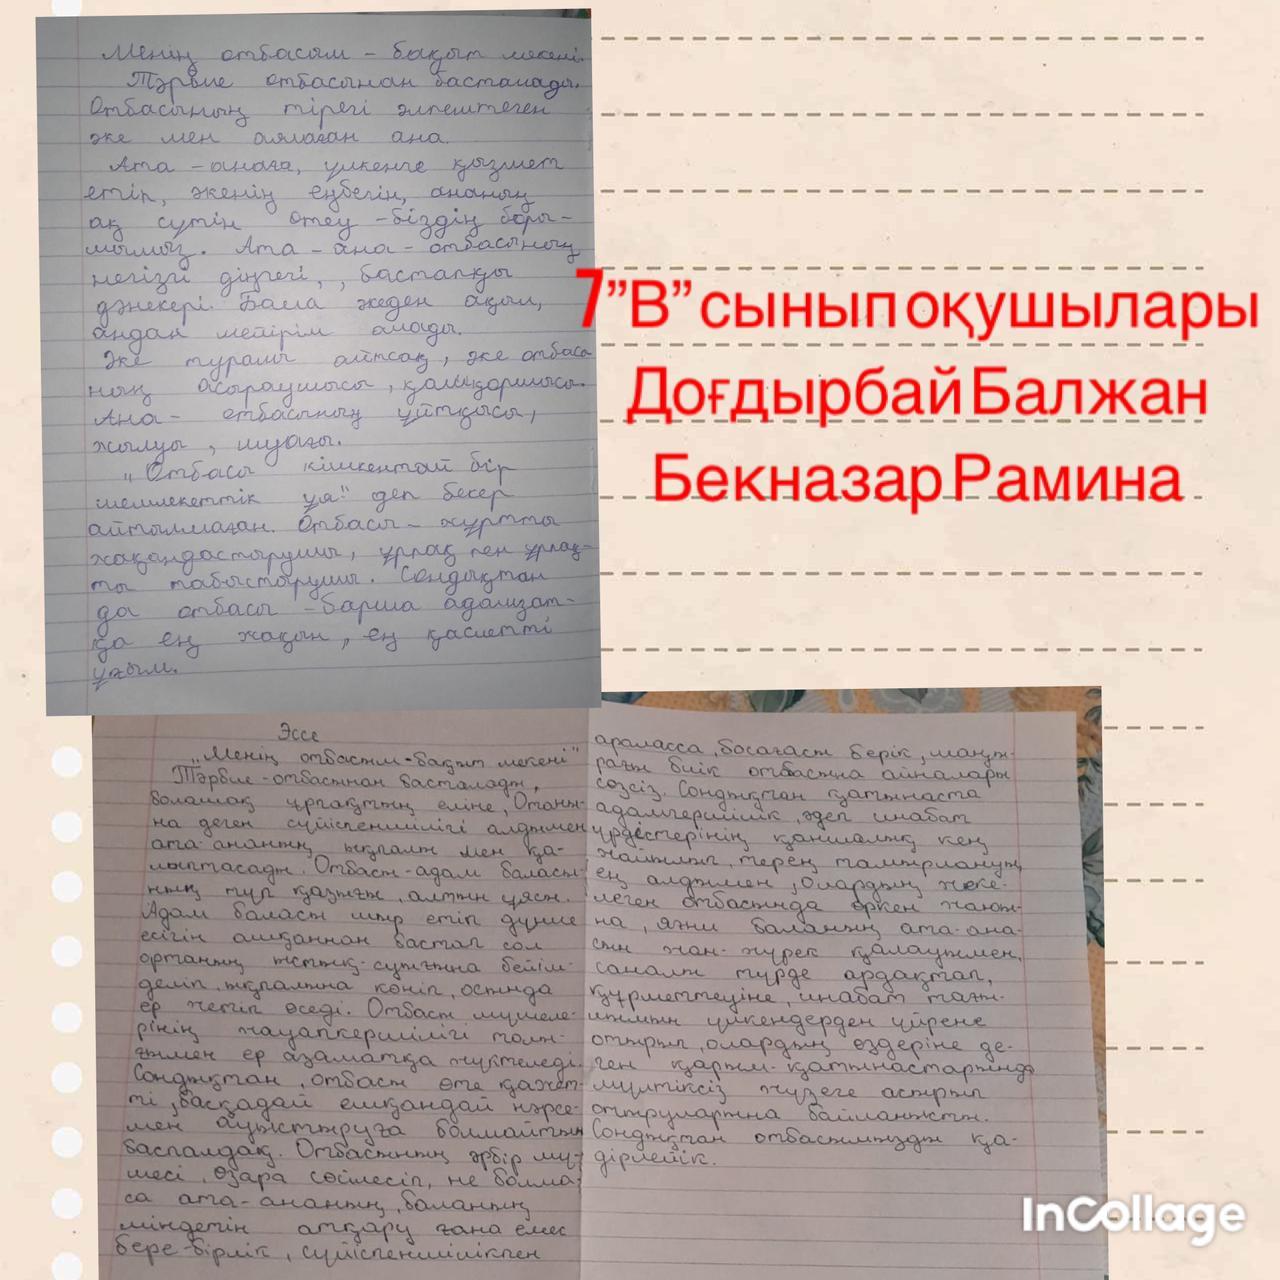 Менің отбасым - бақыт мекені.
Тәрбие отбасынан басталады.
Отбасының тірегі әлпештеген
әке мен аялаған ана.
Ата-анаға, үлкенге қызмет
етіп, әкенің еңбегін, ананың
ақ сүтін өтеу - біздің боры-
шымыз. Ата-ана - отбасының
негізгі діңгегі, бастапқы
дәнекері. Бала әкеден ақыл,
андан мейірім алады.
Әке туралы айтсақ, әке отбасы
ның асыраушысы, қамқоршысы.
Ана - отбасының ұйтқысы,
жылуы, шуағы.
"Отбасы кішкентай бір
мемлекеттік ұя" деп бекер
айтылмаған. Отбасы - жұртты
жақындастырушы, ұрпақ пен ұрпақ-
ты табыстырушы. Сондықтан
да отбасы - барша адамзат-
қа ең жақын, ең қасиетті
ұғым.
7"В" сынып оқушылары
Доғдырбай Балжан
Бекназар Рамина
Эссе
"Менің отбасым-бақыт мекені"
Тәрбие-отбасынан басталады,
болашақ ұрпақтың еліне, Отаны-
на деген сүйіспеншілігі алдымен
ата-ананың ықпалы мен қа-
лыптасады. Отбасы-адам баласы-
ның түп қазығы, алтын ұясы.
Адам баласы шыр етіп дүние
есігін ашқаннан бастап сол
ортаның ыстық-суығына бейім-
деліп, ықпалына көніп, осында
ер жетіп өседі. Отбасы мүшеле-
рінің жауапкершілігі толы-
ғымен ер азаматқа жүктеледі.
Сондықтан, отбасы өте қажет-
ті, басқадай ешқандай нәрсе-
мен ауыстыруға болмайтын
баспалдақ. Отбасының әрбір мү-
шесі, өзара сөйлесіп, не болма-
са ата-ананың, баланың
міндетін атқару ғана емес
бере-бірлік, сүйіспеншілікпен
араласса, босағасы берік, шаңы-
рағы биік отбасына айналары
сөзсіз. Сондықтан қатынаста
адамгершілік, әдеп инабат
үрдістерінің қаншалық кең
жайылып, терең тамырлануы,
ең алдымен, олардың жеке-
леген отбасында өркен жаюы-
на, яғни баланың ата-ана-
сын жан-жүрек қалауымен,
саналы түрде ардақтап,
құрметтеуіне, инабат тағы-
лымын үлкендерден үйрене
отырып, олардың өздеріне де-
ген қарым-қатынастарында
мүлтіксіз жүзеге асырып
отыруларына байланысты.
Сондықтан отбасымызды қа-
дірлейік.
InCollage